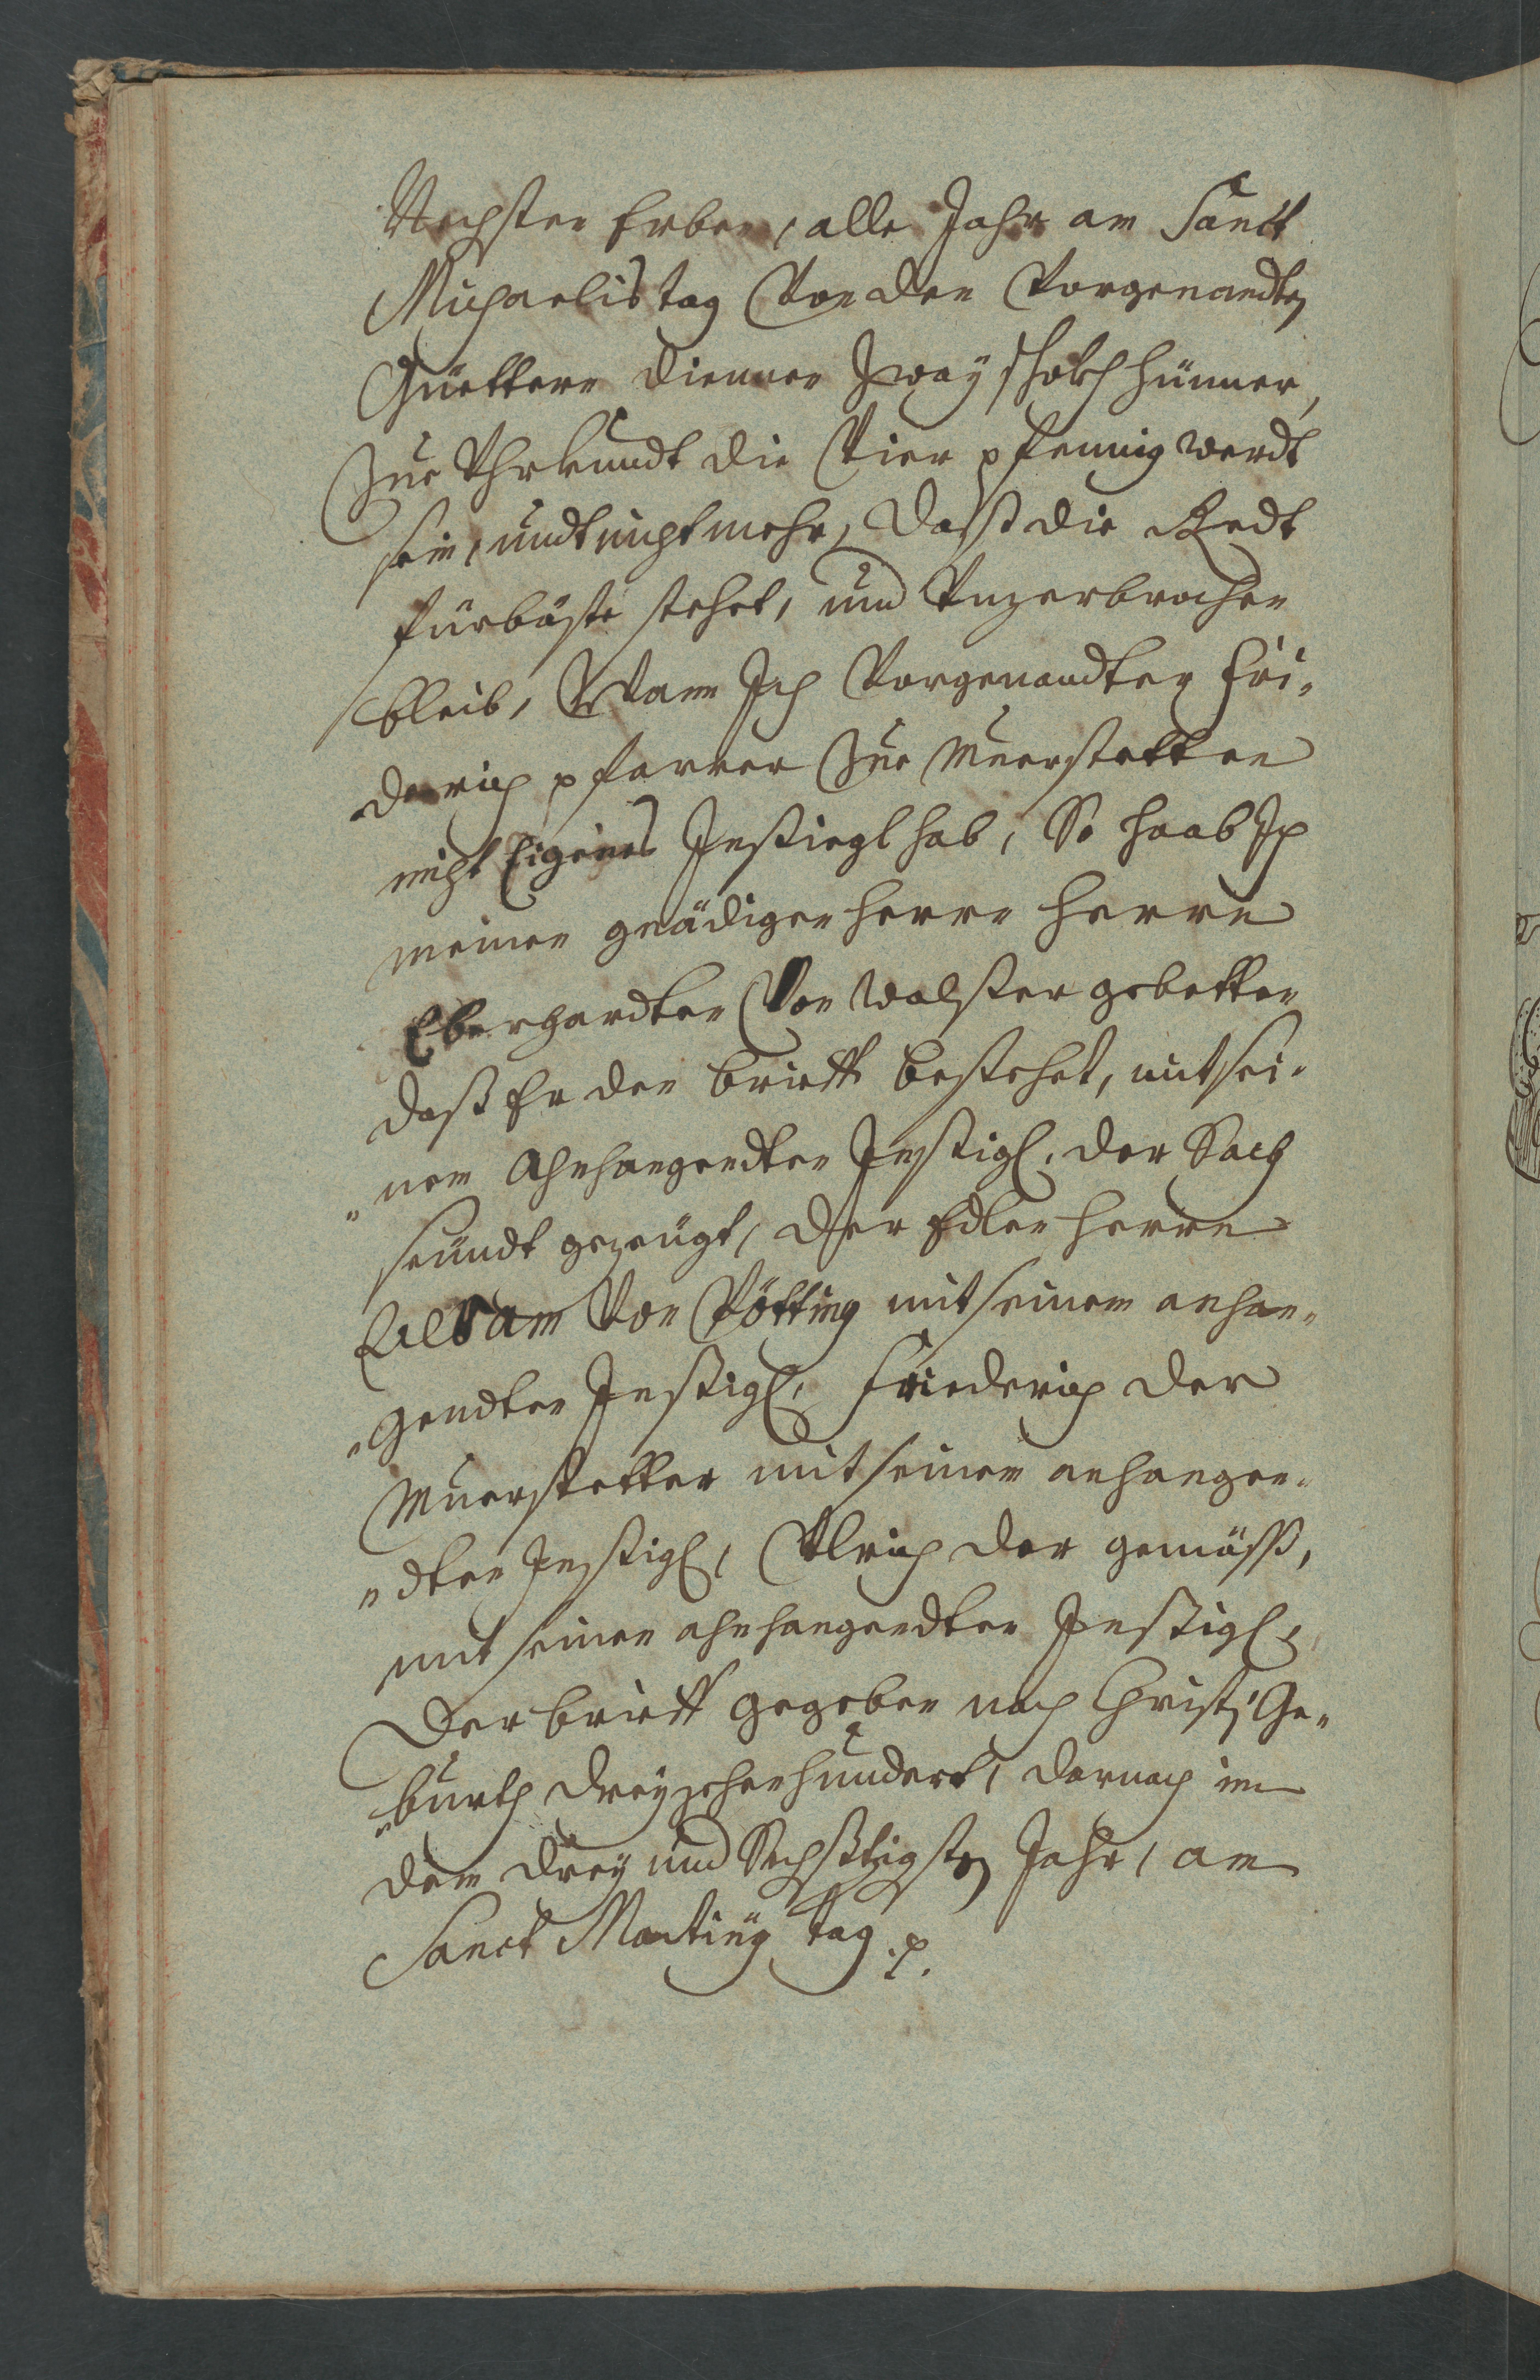 Nechsten Erben, alle Jahr am Sanct
Michaelis tag Von den Vorgenandten
Güettern dienner Zway stokh hünner,
Zue Vhrkundt die Vier pfennig werdt
sein, undt nicht mehr, daß die Redt
fürbäste stehet, und Vnzerbrochen
bleib, Wann Ich Vorgenandter Fri-
derich pfarrer Zue Muerstetten
nicht Eigenes Insiegl hab, So haab Ich
meinen gnädigen herrn herrn
Eberhardten Von Walsser gebetten
daß Er den brieff bestehet, mit sei-
"nem Ahnhangendten Insigl, der Sach
seündt gezeügt, der Edler herrn
Von Pötting mit seinem anhan-
"gendten Insigl, Friederich der
Muerstetter mit seinem anhangen-
"dten Insigl, Vlrich der gemäß,
mit seinen ahnhangendten Insigl,
Der brieff gegeben nach Christi Ge-
"burth dreyzehenhundert, darnach in
dem drey und Sechßtzigsten Jahr, am
Sanct Martiny tag .p.